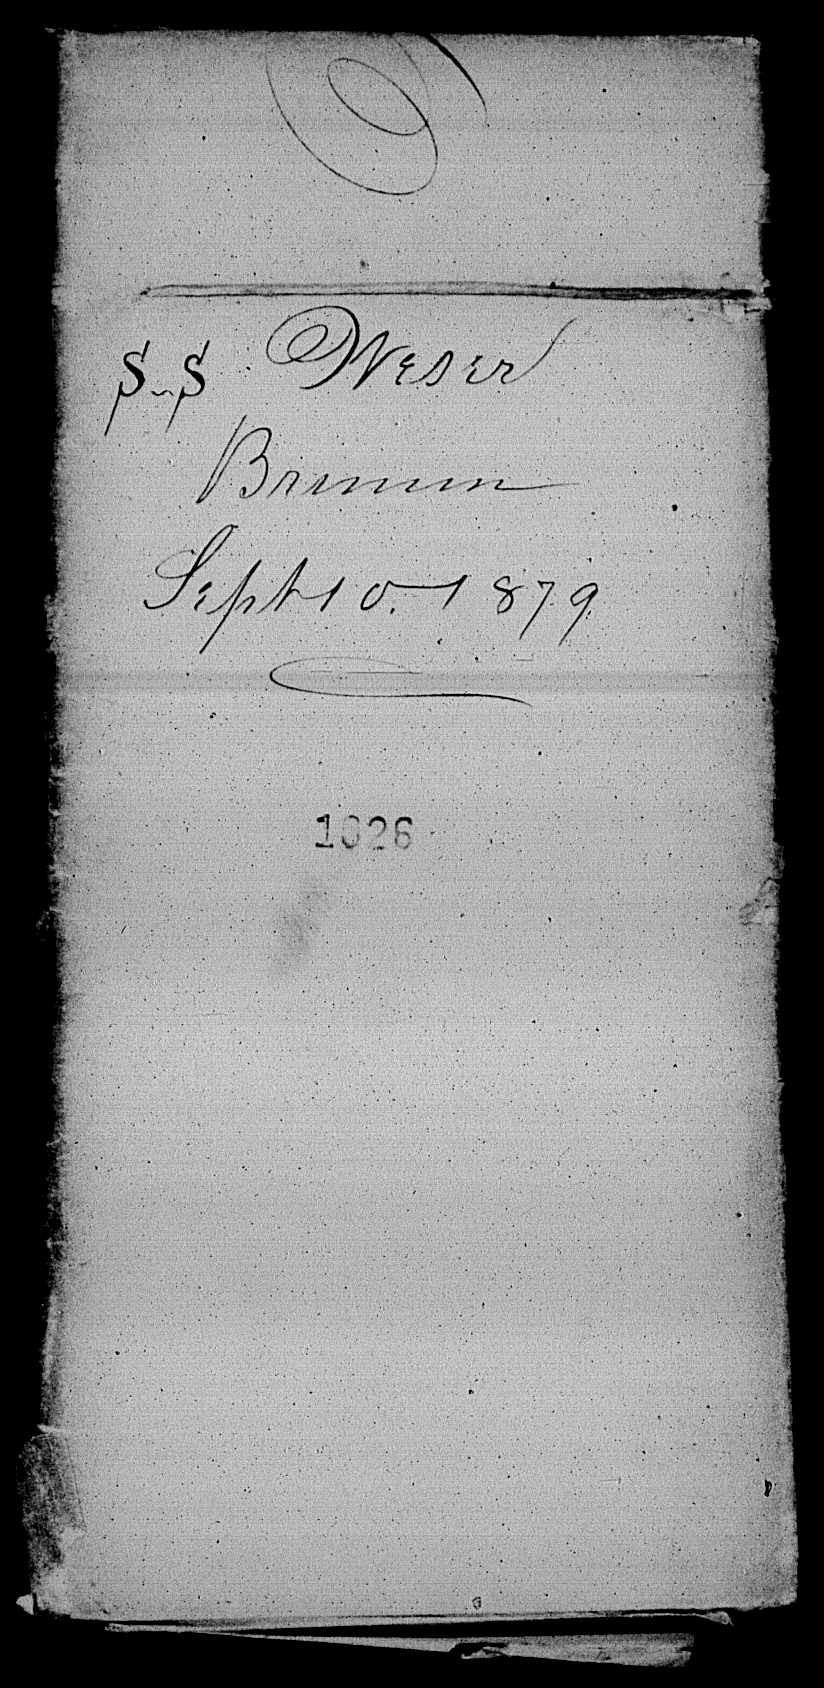 S.S. Weser
Bremen
Sept 10. 1879
1026